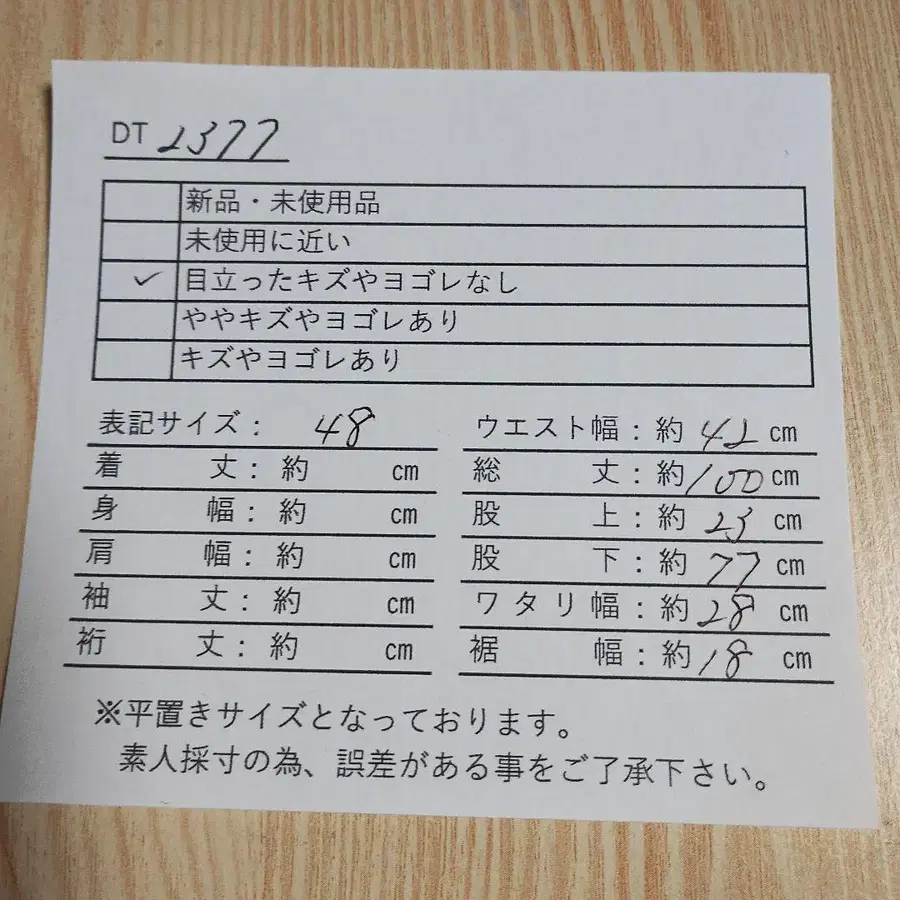 DT 2377
新品・未使用品
未使用に近い
✓ 目立ったキズやヨゴレなし
ややキズやヨゴレあり
キズやヨゴレあり
表記サイズ： 48
着丈：約 cm
身幅：約 cm
肩幅：約 cm
袖丈：約 cm
裄丈：約 cm
ウエスト幅：約 42 cm
総丈：約 100 cm
股上：約 23 cm
股下：約 77 cm
ワタリ幅：約 28 cm
裾幅：約 18 cm
※平置きサイズとなっております。
素人採寸の為、誤差がある事をご了承下さい。